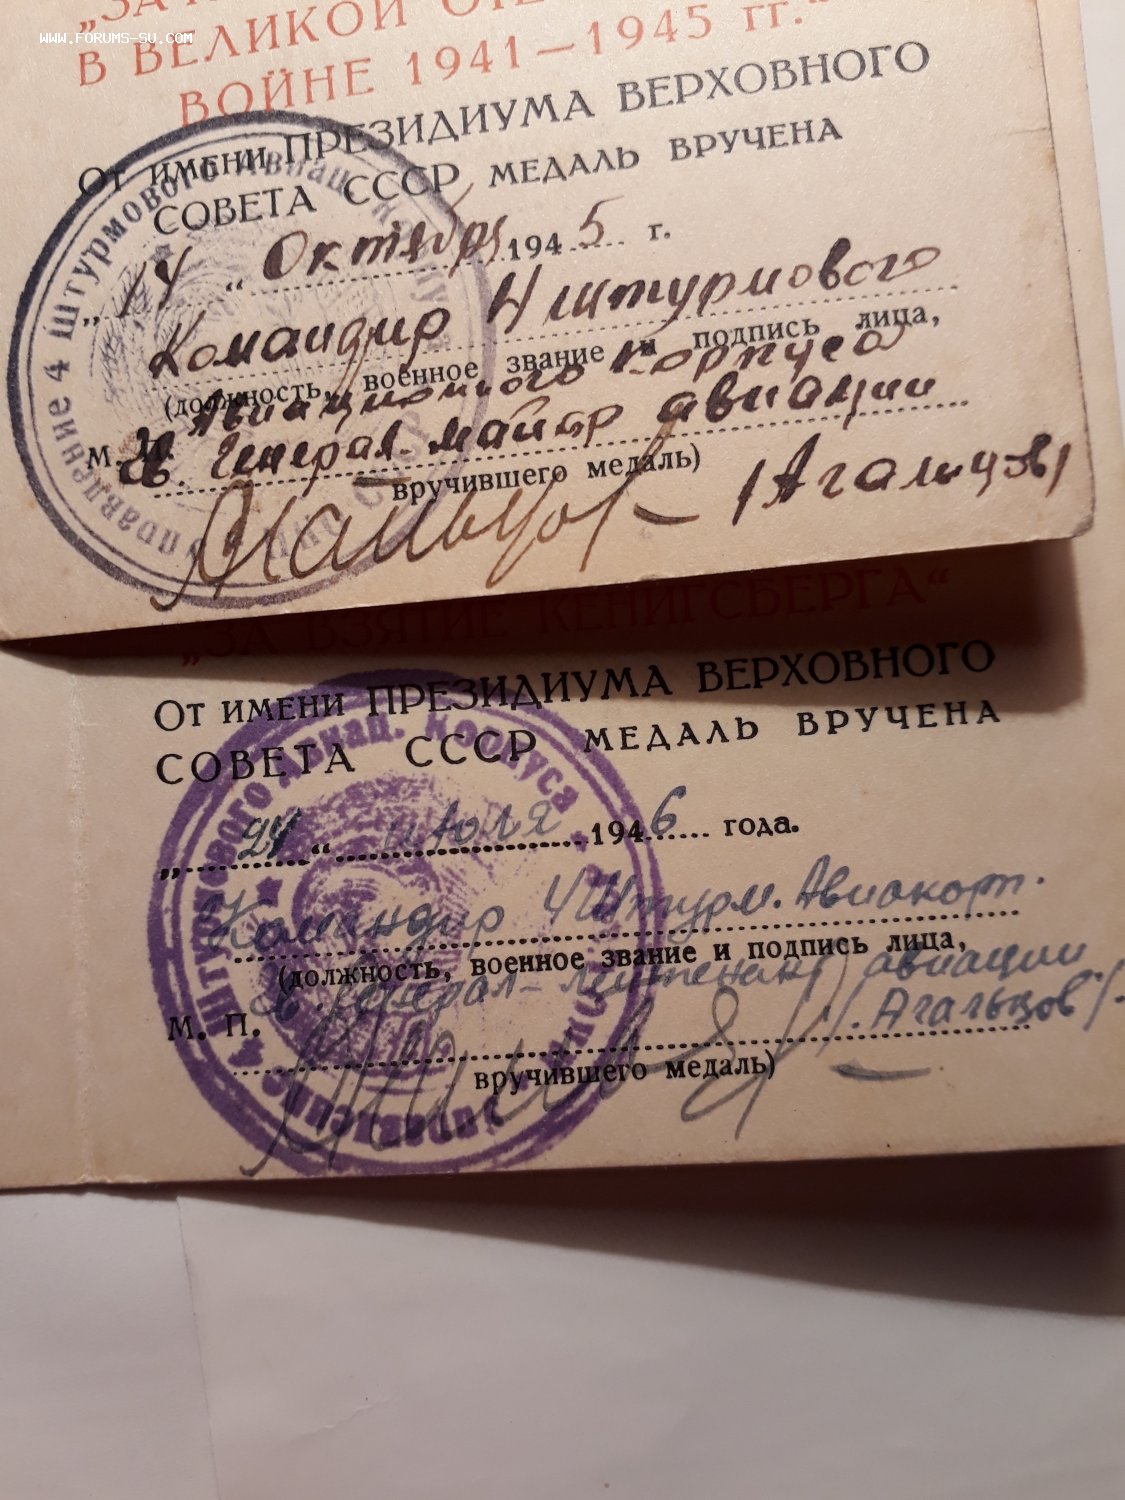 www.FORUMS-SU.com
„ЗА
В ВЕЛИКОЙ
ВОЙНЕ 1941—1945 гг.“
От имени ПРЕЗИДИУМА ВЕРХОВНОГО
СОВЕТА СССР МЕДАЛЬ ВРУЧЕНА
„14“ Октября 1945 г.
Командир 4 штурмового
(должность, военное звание и подпись лица,
Авиационного корпуса
М. П.
Генерал-майор авиации
вручившего медаль)
/Агальцов/
Управление 4 Штурмового Авиац. Корпуса
„ЗА ВЗЯТИЕ КЕНИГСБЕРГА“
От имени ПРЕЗИДИУМА ВЕРХОВНОГО
СОВЕТА СССР МЕДАЛЬ ВРУЧЕНА
„24“ июля 1946 года.
Командир 4 Штурм. Авиакорп.
(должность, военное звание и подпись лица,
Генерал-лейтенант авиации
М. П.
/Агальцов/
вручившего медаль)
Управление 4 Штурмового Авиац. Корпуса